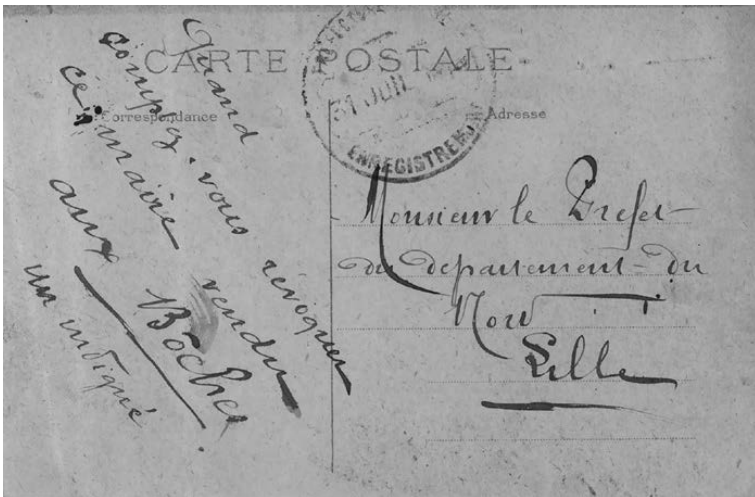 CARTE POSTALE
Correspondance
Adresse
31 JUIL
ENREGISTREMENT
Quand
comptez-vous révoquer
ce maire vendu
aux Boches
un indigné
Monsieur le Prefet
du departement du
Nord
Lille